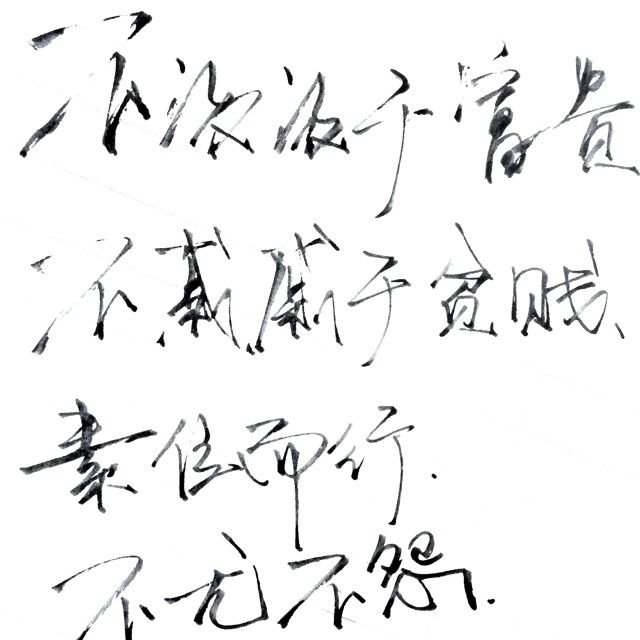 不汲汲于富贵
不戚戚于贫贱、
素位而行.
不尤不怨.